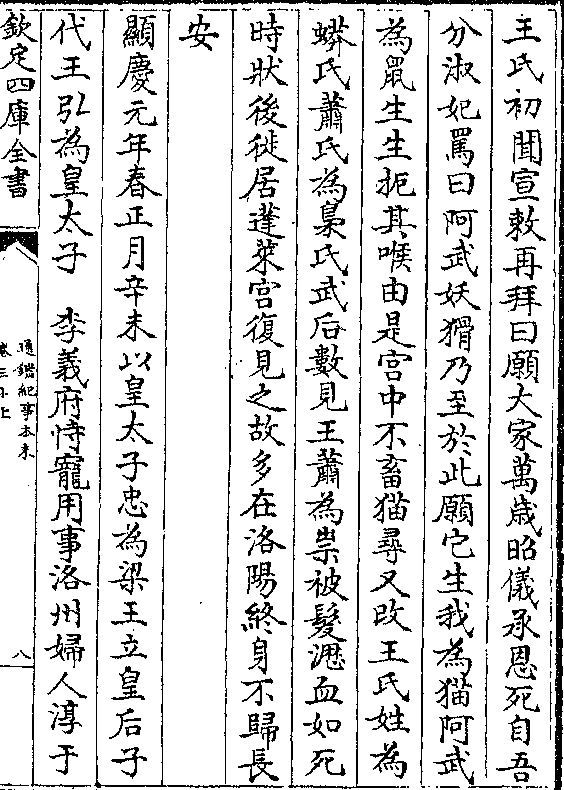 王氏初聞宣敕再拜曰願大家萬歲昭儀承恩死自吾
分淑妃罵曰阿武妖猾乃至於此願它生我為猫阿武
為鼠生生扼其喉由是宮中不畜猫尋又改王氏姓為
蟒氏蕭氏為梟氏武后數見王蕭為祟被髮瀝血如死
時狀後徙居蓬萊宮復見之故多在洛陽終身不歸長
安
顯慶元年春正月辛未以皇太子忠為梁王立皇后子
代王弘為皇太子 李義府恃寵用事洛州婦人淳于
欽定四庫全書
通鑑紀事本末
卷三十上
八